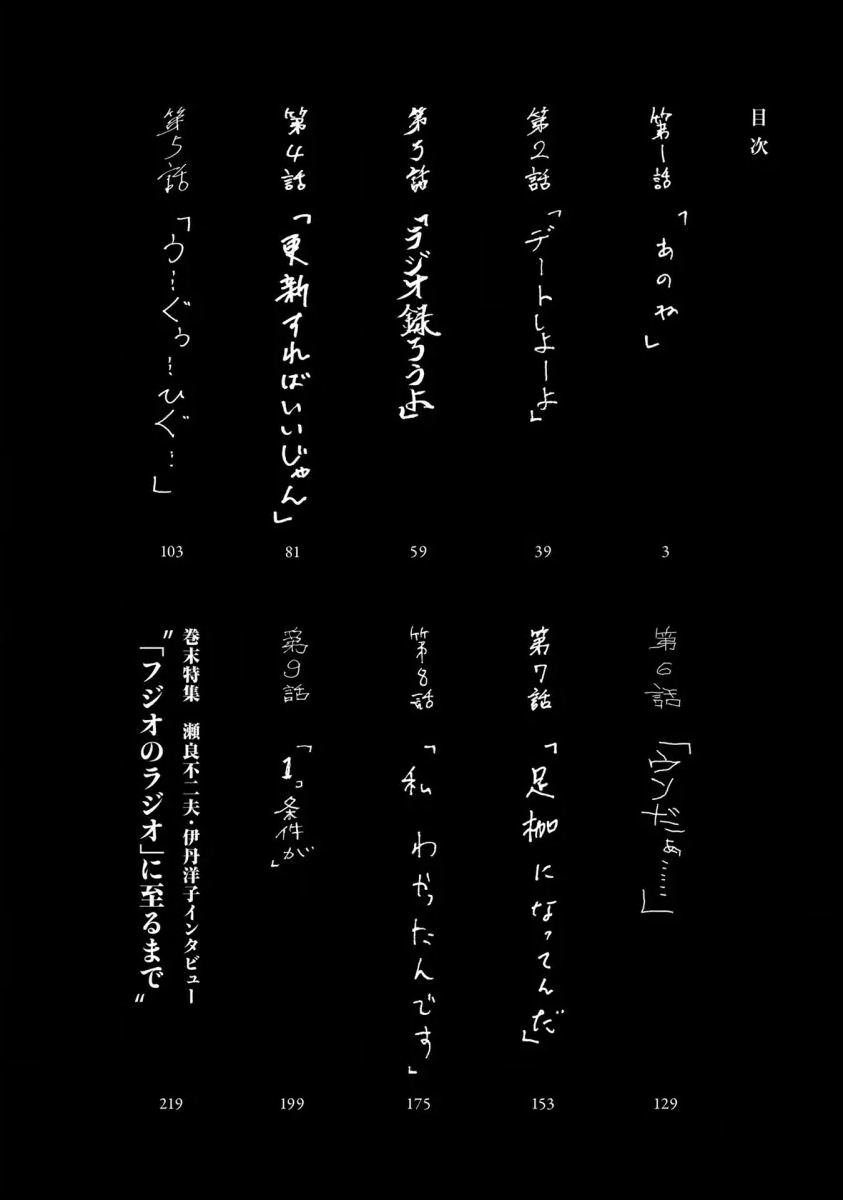 目次
第1話「あのね」
3
第2話「デートしよーよ」
39
第3話「ラジオ録ろうよ」
59
第4話「更新すればいいじゃん」
81
第5話「う…ぐぅ…ひぐ…」
103
第6話「ウソだぁ……」
129
第7話「足枷になってんだ」
153
第8話「私 わかったんです」
175
第9話「1コ条件が」
199
巻末特集 瀬良不二夫・伊丹洋子インタビュー
"「フジオのラジオ」に至るまで"
219